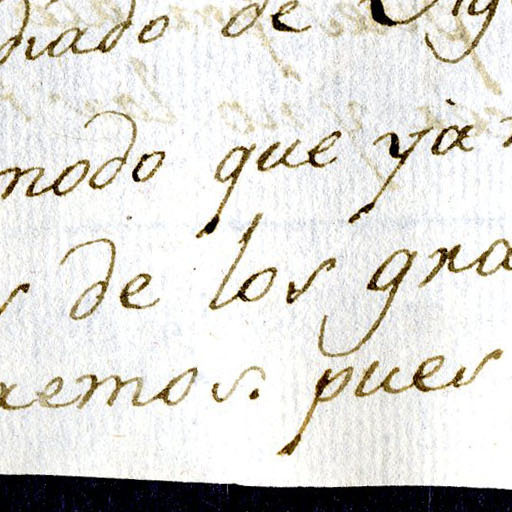 diado de
modo que ya
s de los gra
remos. pues